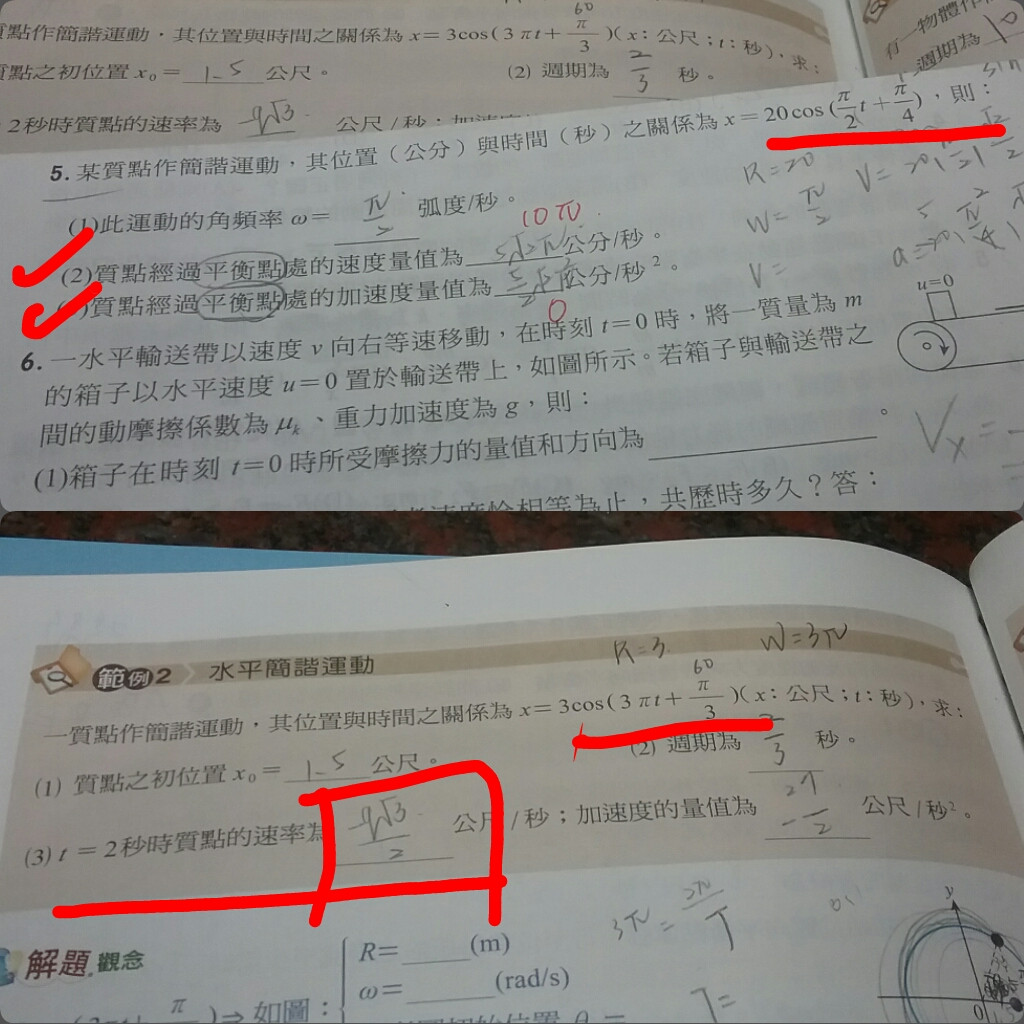 質點作簡諧運動，其位置與時間之關係為 x = 3cos(3πt + π/3)(x：公尺；t：秒)，求：
60
質點之初位置 x₀ = 1.5 公尺。 (2) 週期為 2/3 秒。
2秒時質點的速率為 9√3 公尺/秒；加速
有一物體作
週期為
5. 某質點作簡諧運動，其位置（公分）與時間（秒）之關係為 x = 20cos(π/2 t + π/4)，則：
(1)此運動的角頻率 ω = π/2 弧度/秒。
R=20
W=π/2
10π
(2)質點經過平衡點處的速度量值為 5√2π 公分/秒。
)質點經過平衡點處的加速度量值為 公分/秒²。
0
V=
u=0
6. 一水平輸送帶以速度 v 向右等速移動，在時刻 t=0 時，將一質量為 m
的箱子以水平速度 u=0 置於輸送帶上，如圖所示。若箱子與輸送帶之
間的動摩擦係數為 μₖ、重力加速度為 g，則：
Vx=
(1)箱子在時刻 t=0 時所受摩擦力的量值和方向為 。
速度恰相等為止，共歷時多久？答：
範例2 水平簡諧運動
R=3 W=3π
60
一質點作簡諧運動，其位置與時間之關係為 x = 3cos(3πt + π/3)(x：公尺；t：秒)，求：
(1) 質點之初位置 x₀ = 1.5 公尺。 (2) 週期為 2/3 秒。
(3) t = 2秒時質點的速率為 9√3/2 公尺/秒；加速度的量值為 公尺/秒²。
3π = 2π/T
解題 觀念
R= (m)
ω= (rad/s)
⇒ 如圖：
T=
y
0